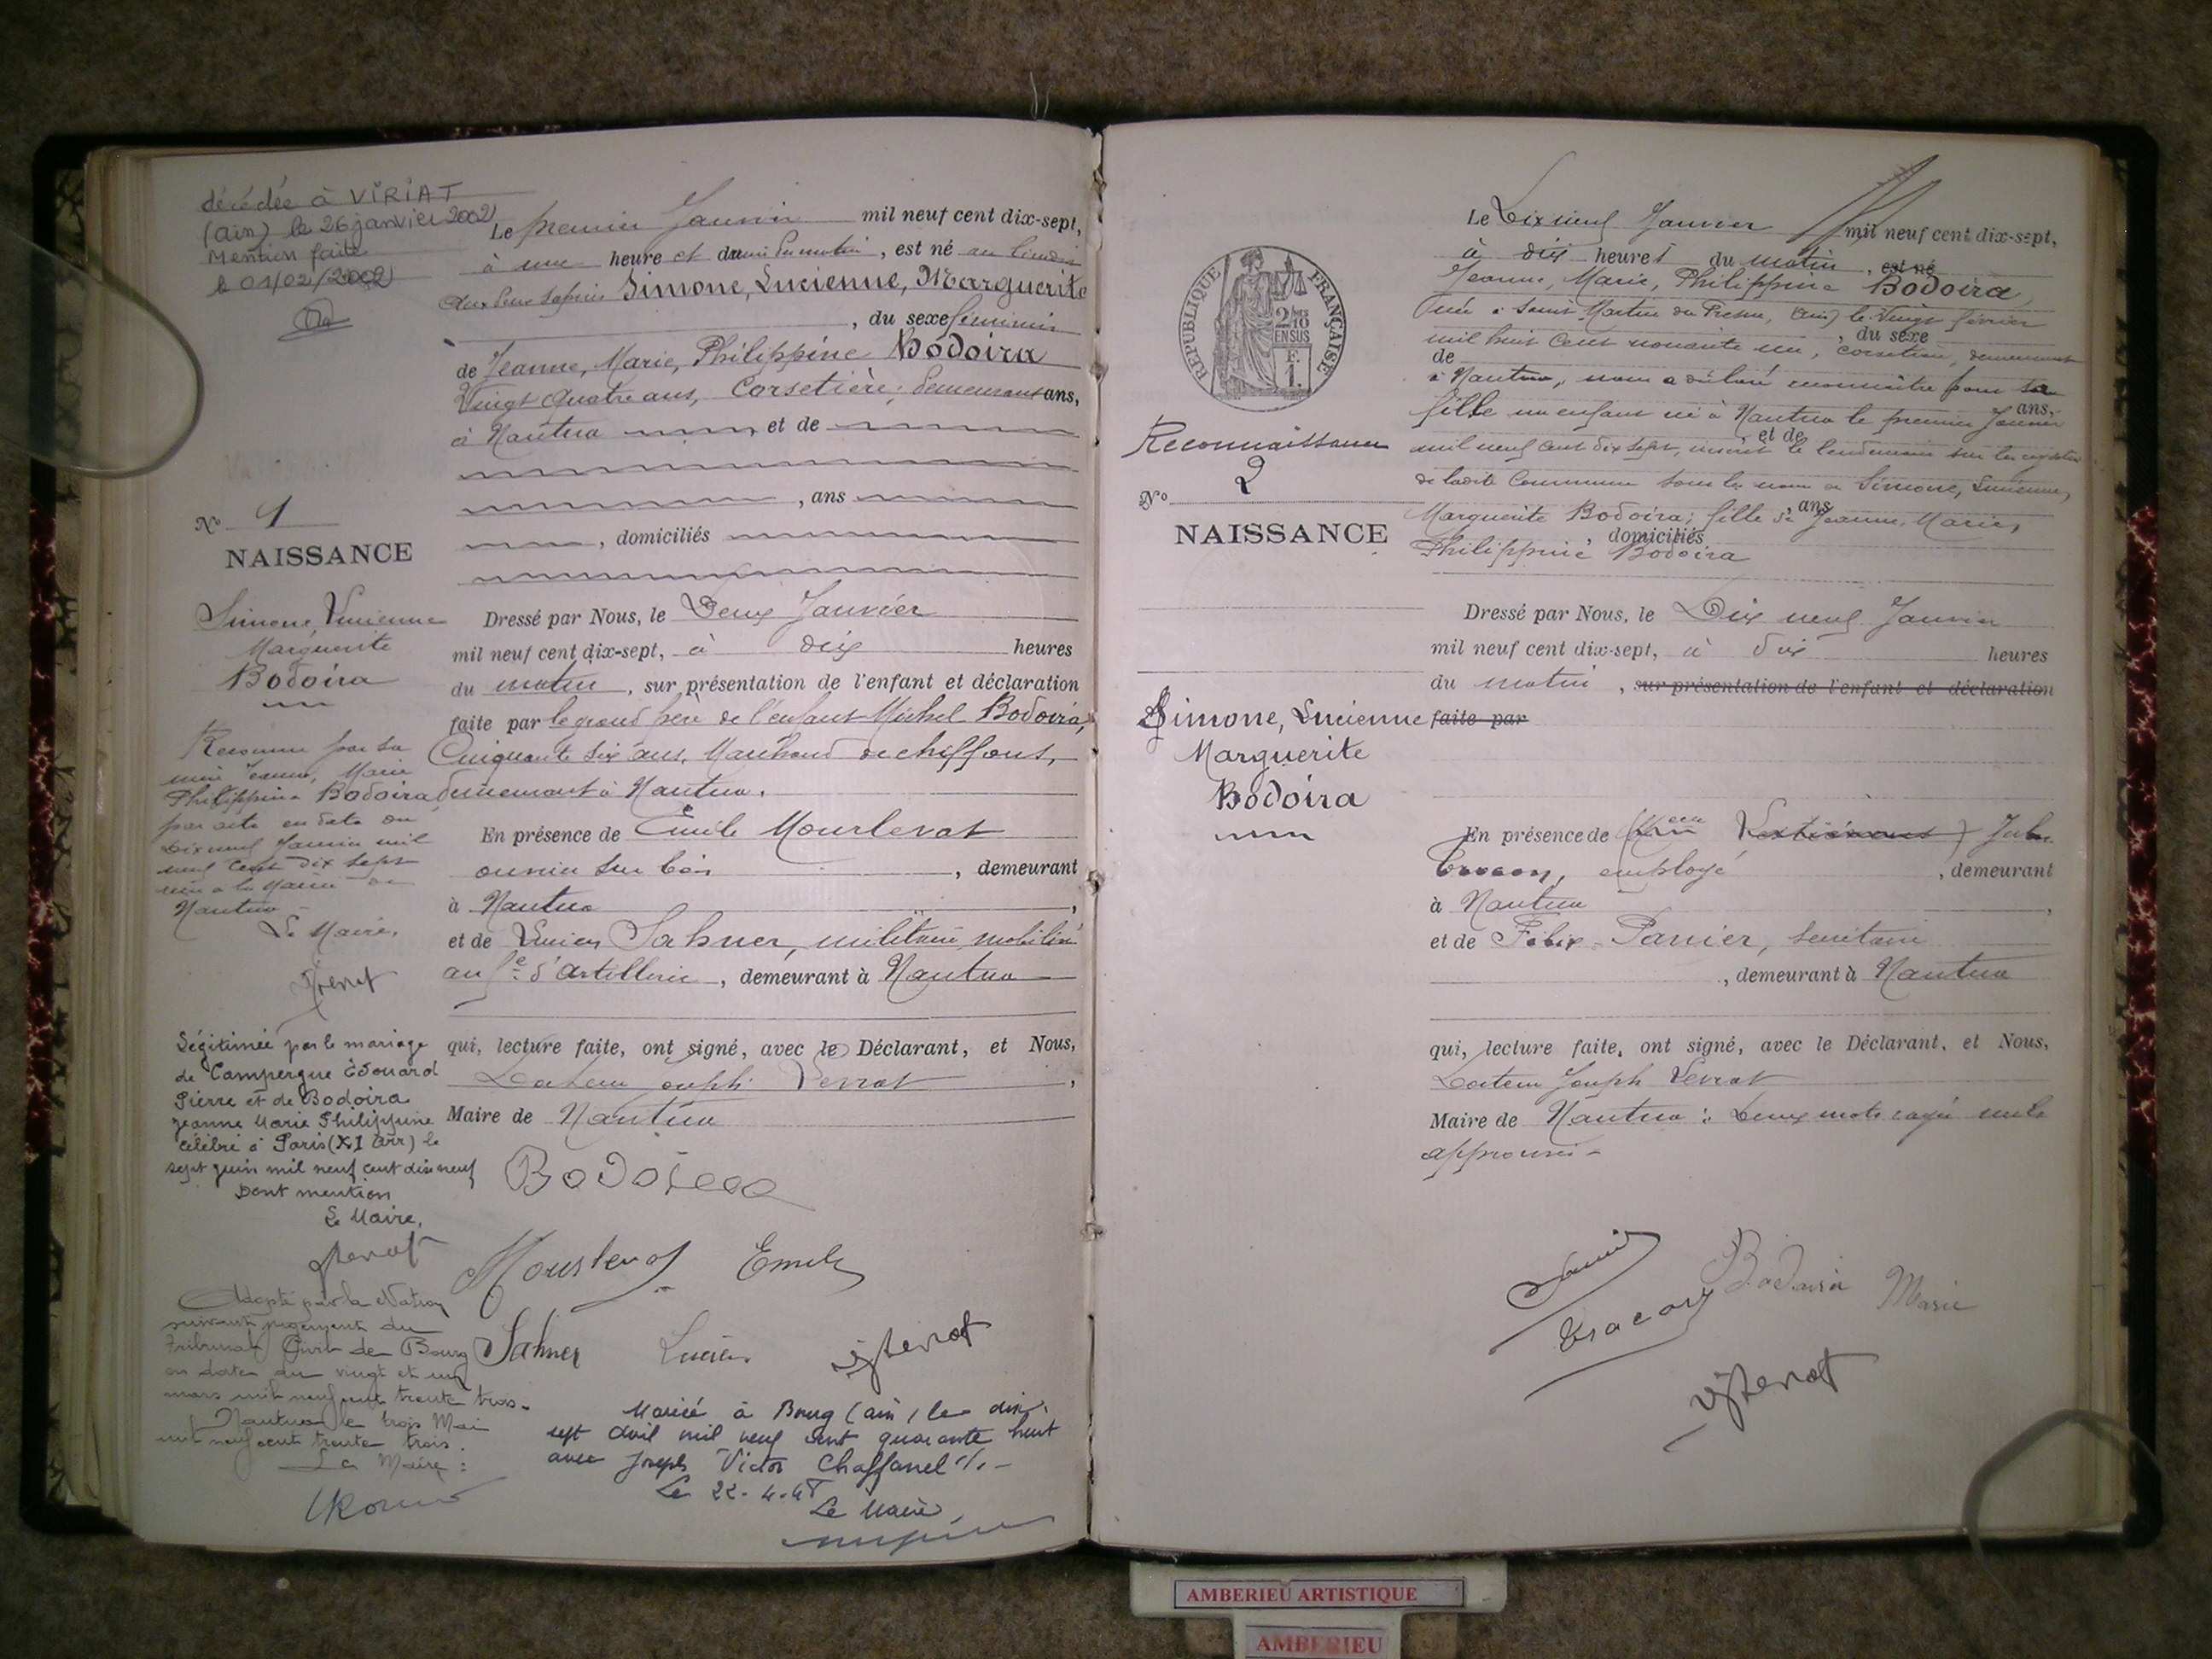 décédée à VIRIAT
(ain) le 26 janvier 2002
Mention faite
le 01/02/2002
N° 1
NAISSANCE
Simone, Lucienne
Marguerite
Bodoira
Reconnue par sa
mère Jeanne, Marie
Philippine Bodoira
par acte en date du
dix neuf Janvier mil
neuf cent dix sept
à la Mairie de
Nantua
Le Maire,
Légitimée par le mariage
de Campergue Edouard
Pierre et de Bodoira
Jeanne Marie Philippine
célébré à Paris (XI arr) le
sept juin mil neuf cent dix neuf
Dont mention
Le Maire,
Adopté par la Nation
suivant jugement du
Tribunal Civil de Bourg
en date du vingt et un
mars mil neuf cent trente trois.
Nantua le trois Mai
mil neuf cent trente trois.
Le Maire :
Le premier Janvier mil neuf cent dix-sept,
à une heure et demie du matin, est né au lieudit
aux deux sapins Simone, Lucienne, Marguerite
, du sexe féminin
de Jeanne, Marie, Philippine Bodoira
Vingt quatre ans, Corsetière, demeurant ans,
à Nantua et de
, ans
, domiciliés
Dressé par Nous, le Deux Janvier
mil neuf cent dix-sept, à dix heures
du matin, sur présentation de l'enfant et déclaration
faite par le grand père de l'enfant Michel Bodoira,
Cinquante six ans, Marchand de chiffons,
demeurant à Nantua.
En présence de Emile Mourlevat
ouvrier sur bois, demeurant
à Nantua,
et de Lucien Sahner, militaire mobilisé
au d'Artillerie, demeurant à Nantua
qui, lecture faite, ont signé, avec le Déclarant, et Nous,
Docteur Joseph,
Maire de Nantua
Bodoira
Mourlevat Emile
Sahner Lucien
Marié à Bourg (ain) le dix
sept avril mil neuf cent quarante huit
avec Joseph Victor Chaffanel
Le 22-4-48
Le Maire
RÉPUBLIQUE FRANÇAISE
2/10 EN SUS
F. 1.
Reconnaissance
N° 2
NAISSANCE
Simone, Lucienne
Marguerite
Bodoira
Le Dix neuf Janvier mil neuf cent dix-sept,
à dix heures du matin, est né
Jeanne, Marie, Philippine Bodoira,
née à Saint Martin du Fresne, (Ain) le vingt février
, du sexe
mil huit cent nonante un, corsetière, demeurant
de
à Nantua, nous a déclaré reconnaître pour sa
ans,
fille un enfant né à Nantua le premier Janvier
, et de
mil neuf cent dix sept, inscrit le lendemain sur les registres
de ladite Commune sous les noms de Simone, Lucienne,
, ans
Marguerite Bodoira; fille de Jeanne, Marie,
, domiciliés
Philippine Bodoira
Dressé par Nous, le Dix neuf Janvier
mil neuf cent dix-sept, à dix heures
du matin, sur présentation de l'enfant et déclaration
faite par
En présence de
employé, demeurant
à Nantua,
et de Félix Panier, secrétaire
, demeurant à Nantua
qui, lecture faite, ont signé, avec le Déclarant, et Nous,
Docteur Joseph
Maire de Nantua : Deux mots rayés nuls
approuvés
Bodoira Marie
AMBERIEU ARTISTIQUE
AMBERIEU